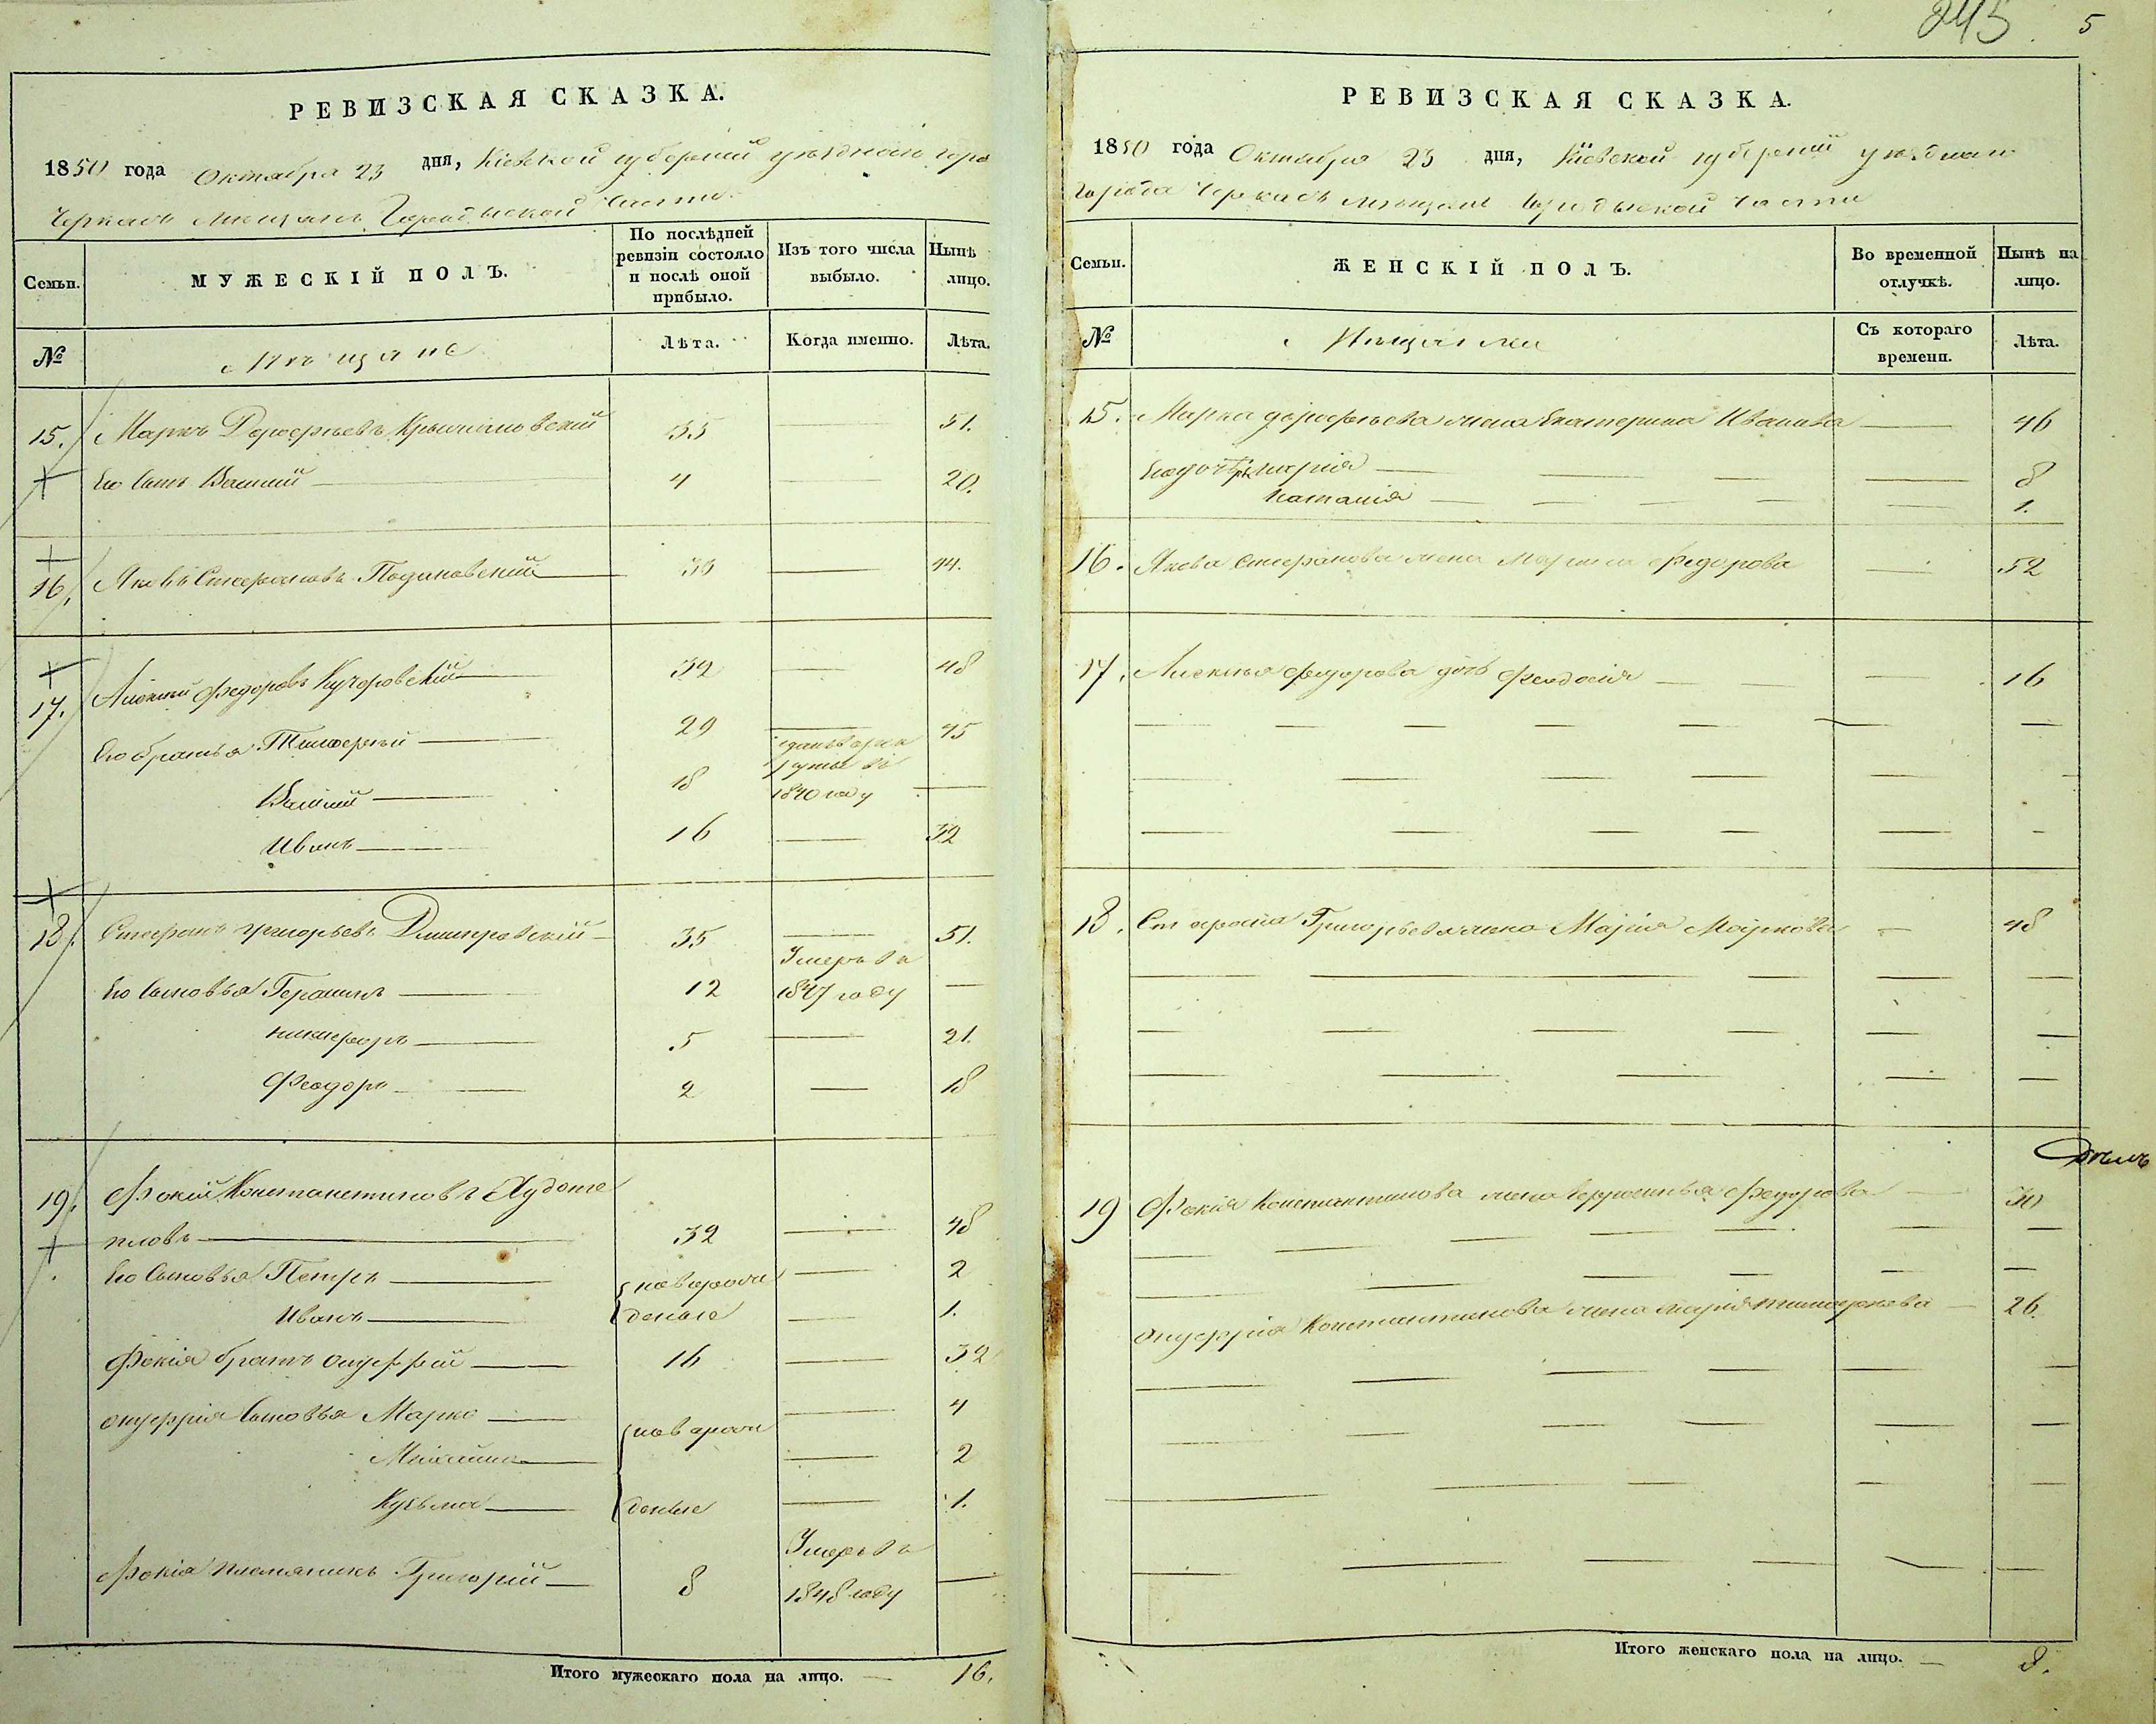 РЕВИЗСКАЯ СКАЗКА.
1850 года Октября 23 дня, Кіевской губерніи уѣзднаго горо
Черкасъ мѣщанъ Городской части
Семьи.
МУЖЕСКІЙ ПОЛЪ.
По послѣдней ревизіи состояло и послѣ оной прибыло.
Изъ того числа выбыло.
Нынѣ лицо.
№
Мѣщане
Лѣта.
Когда именно.
Лѣта.
15. Марко Дорофѣевъ 35 — 51.
Его Сынъ Василій — 4 — 20.
16. Яковъ Стефановъ — — 44.
17. Алексѣй Федоровъ Кучеровскій — 32 — 48
Его братья Тимофей — 29 — 45
Василій — 18 1840 году —
Иванъ — 16 — 32
18. Стефанъ Григорьевъ Дмитровскій — 35 — 51.
Его Сыновья Герасимъ — 12 Умеръ въ 1847 году —
Никифоръ — 5 — 21.
Феодоръ — 2 — 18
19. Фокій Константиновъ Худоте
пловъ — 32 — 48
Его Сыновья Петръ — новорож — 2
Иванъ — деные — 1.
Фокія братъ Онуфрій — 16 — 32
Онуфрія Сыновья Марко — новорож — 4
— 2
Кузьма — деные — 1.
Фокія племяникъ Григорій — 8 Умеръ въ 1848 году —
Итого мужескаго пола на лицо. — 16.
245 5
РЕВИЗСКАЯ СКАЗКА.
1850 года Октября 23 дня, Кіевской губерніи уѣзднаго
города Черкасъ мѣщанъ Городской части
Семьи.
ЖЕНСКІЙ ПОЛЪ.
Во временной отлучкѣ.
Нынѣ на лицо.
№
Мѣщанки
Съ котораго времени.
Лѣта.
15. Марка Дорофѣева жена Екатерина Иванова — 46
Его дочери Марія — 8
Наталія — 1.
16. Якова Стефанова жена Федорова — 52
17. Алексѣя Федорова дочь Феодосія — 16
18. Стефана Григорьева жена Марія Маркова — 48
19 Фокія Константинова жена Федорова — 30
Онуфрія Константинова жена Марія Тимофѣева — 26.
Итого женскаго пола на лицо. — 8.